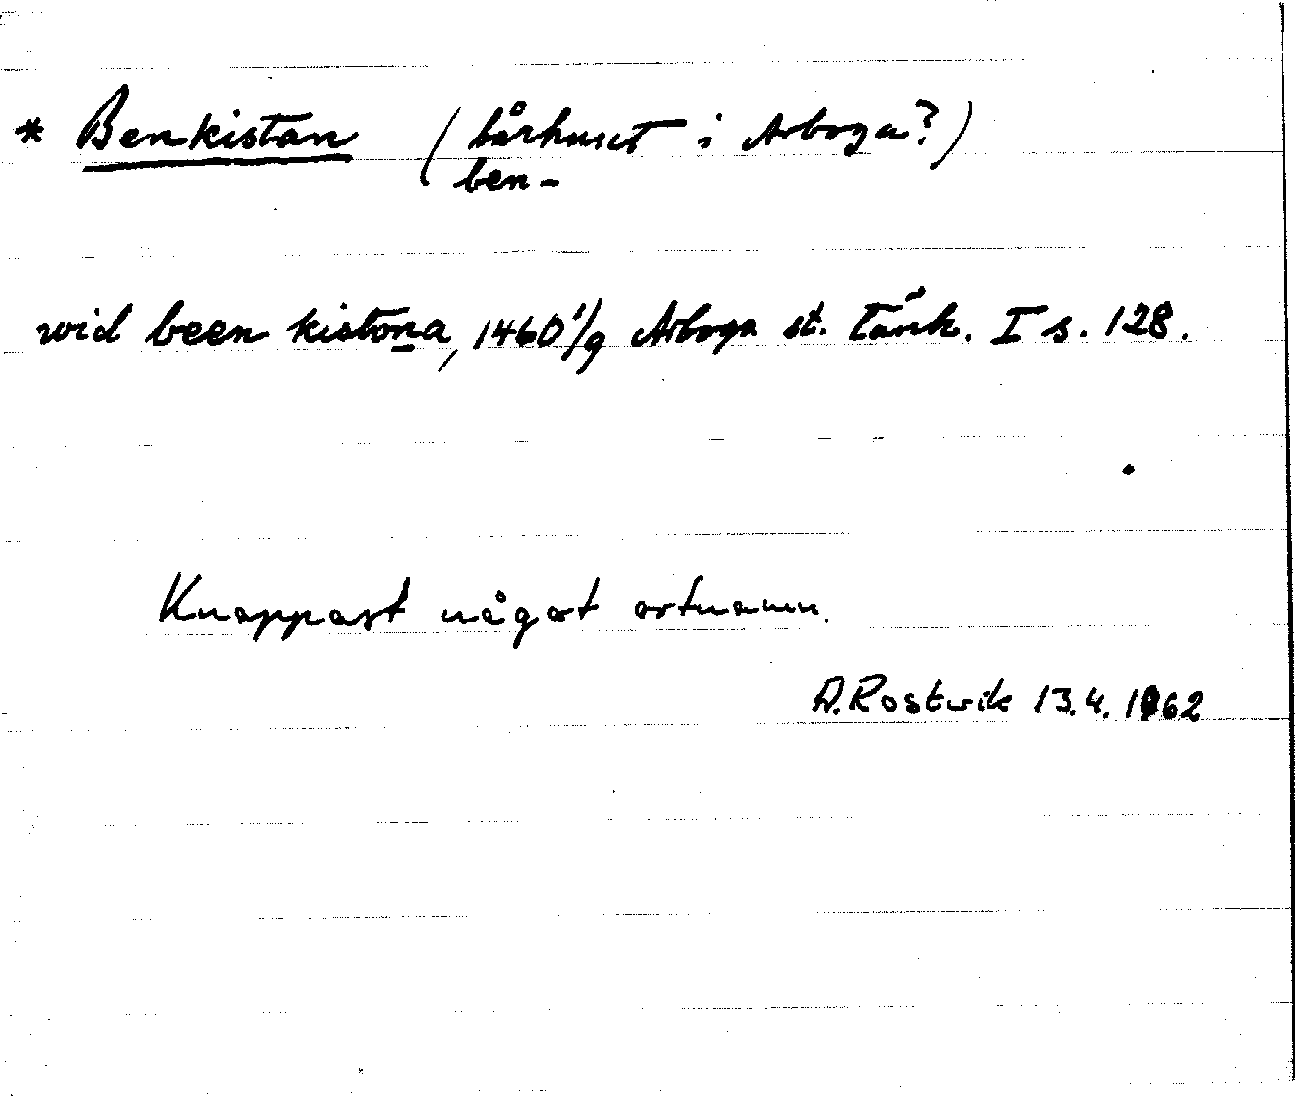 * Benkistan (bårhuset i Arboga?)
ben-
wid been kistona, 1460 1/9 Arboga st. tänk. I s. 128.
Knappast något ortnamn.
A. Rostvik 13.4.1962